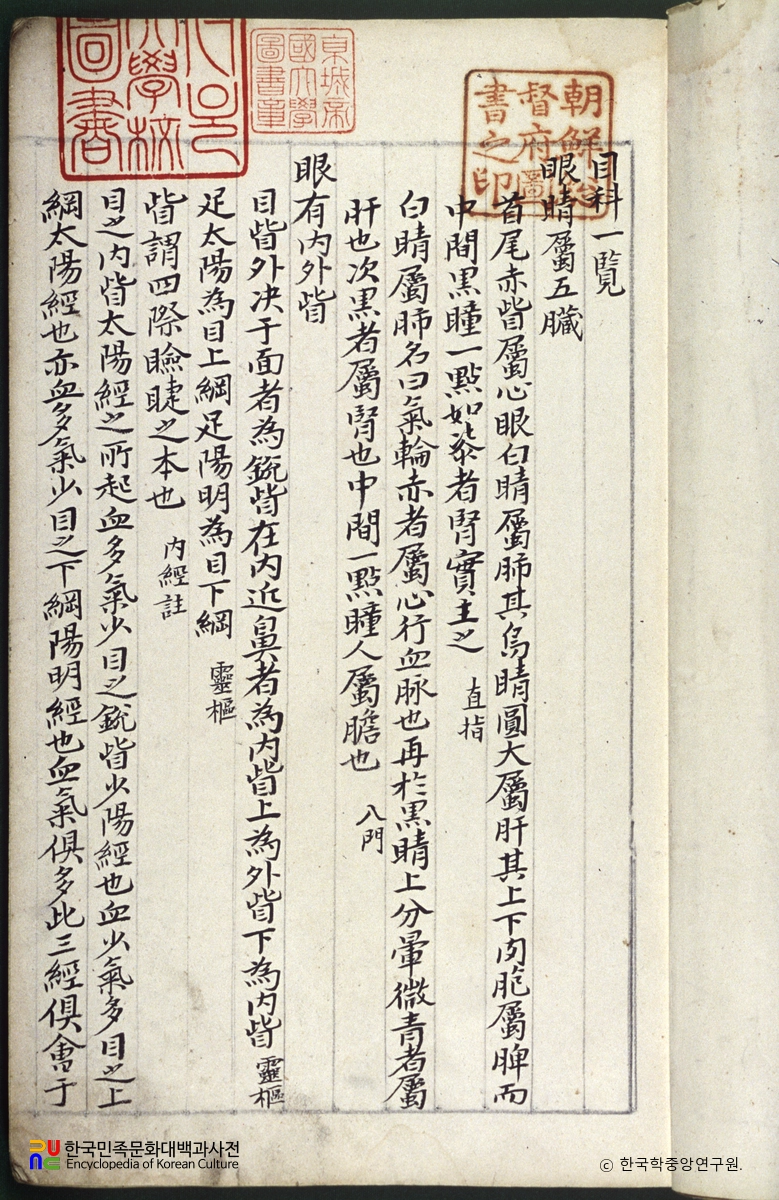 目科一覽
眼睛屬五臟
首尾赤眥屬心眼白睛屬肺其烏睛圓大屬肝其上下肉胞屬脾而
中間黑瞳一點如漆者腎實主之 直指
白睛屬肺名曰氣輪赤者屬心行血脉也再於黑睛上分暈微青者屬
肝也次黑者屬腎也中間一點瞳人屬膽也 八門
眼有內外眥
目眥外決于面者為銳眥在內近鼻者為內眥上為外眥下為內眥 靈樞
足太陽為目上綱足陽明為目下綱 靈樞
眥謂四際瞼睫之本也 內經註
目之內眥太陽經之所起血多氣少目之銳眥少陽經也血少氣多目之上
綱太陽經也亦血多氣少目之下綱陽明經也血氣俱多此三經俱會于
朝鮮總
督府圖
書之印
京城帝
國大學
圖書章
大學校
圖書
한국민족문화대백과사전
Encyclopedia of Korean Culture
© 한국학중앙연구원.